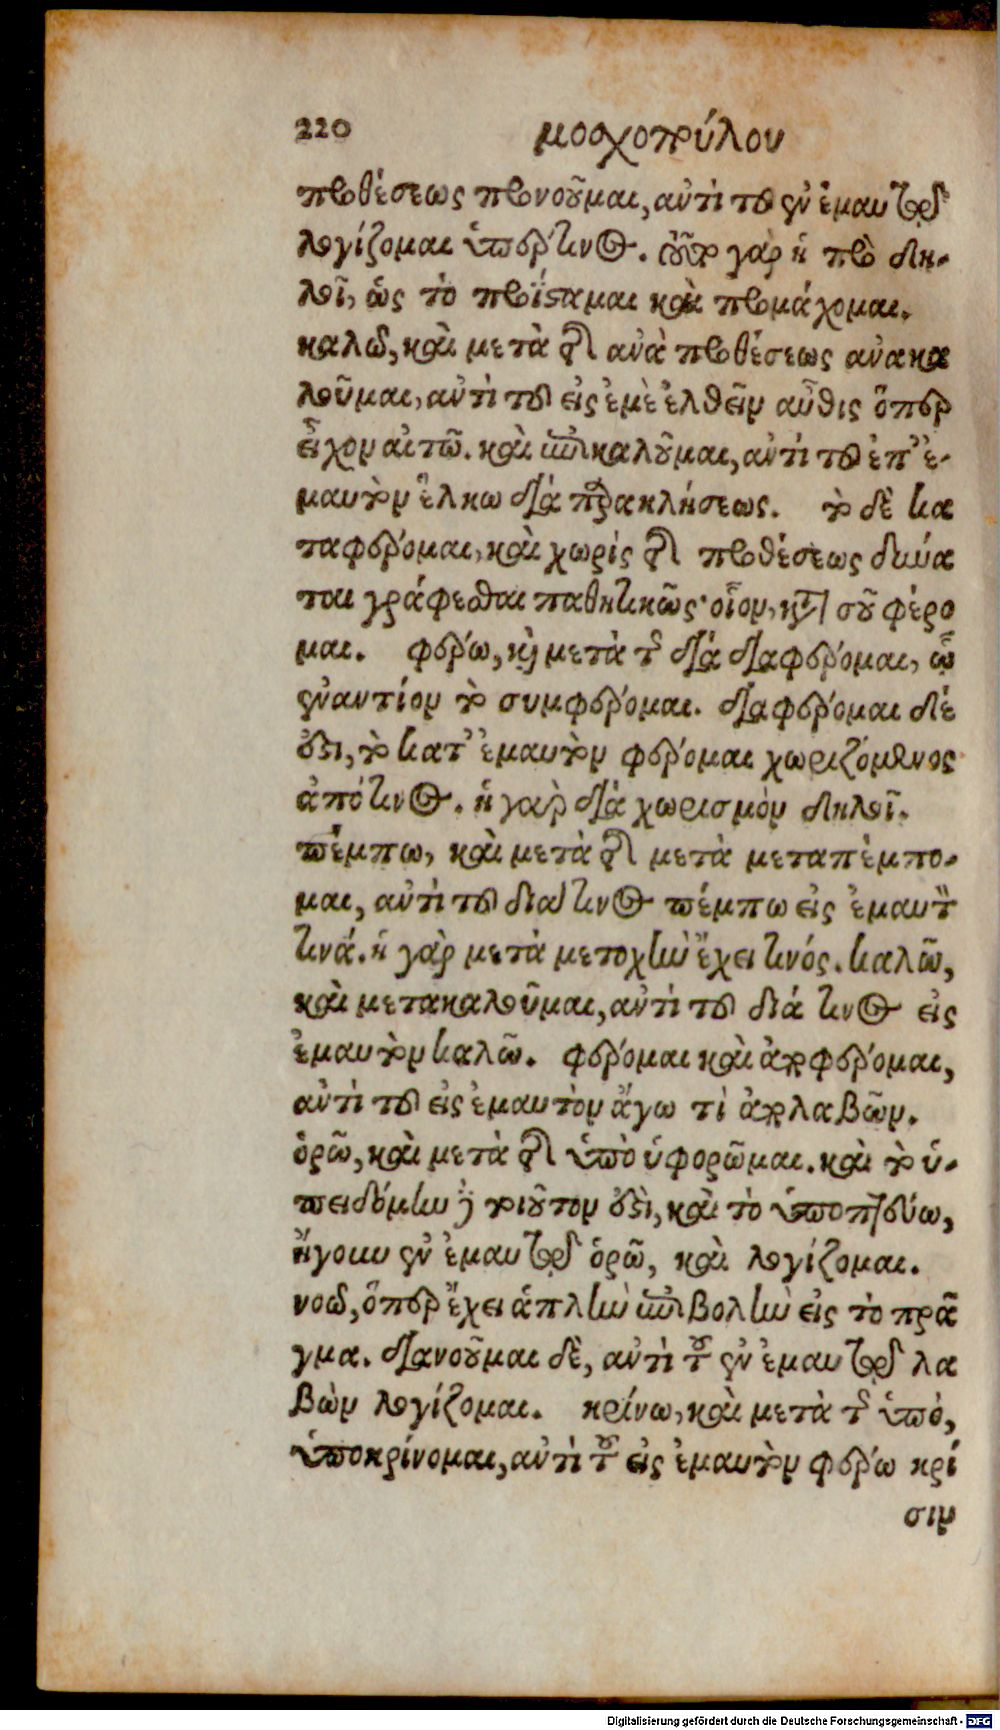 220 μοσχοπούλου
προθέσεως προνοῦμαι, ἀντὶ τοῦ ἐν ἐμαυτῷ
λογίζομαι ὑπέρ τινος. οὕτω γὰρ ἡ πρὸ δη-
λοῖ, ὡς τὸ προΐσταμαι καὶ προμάχομαι.
καλῶ, καὶ μετὰ τῆς ἀνὰ προθέσεως ἀνακα
λοῦμαι, ἀντὶ τοῦ εἰς ἐμὲ ἐλθεῖν αὖθις ὅπερ
εἶχον αἰτῶ. καὶ ἐπικαλοῦμαι, ἀντὶ τοῦ ἐπ' ἐ-
μαυτὸν ἕλκω διὰ παρακλήσεως. τὸ δὲ κα
ταφέρομαι, καὶ χωρὶς τῆς προθέσεως δύνα
ται γράφεσθαι παθητικῶς· οἷον, κατὰ σοῦ φέρο
μαι. φέρω, καὶ μετὰ τῆς διὰ διαφέρομαι, ᾧ
ἐναντίον τὸ συμφέρομαι. διαφέρομαι δέ
ἐστι, τὸ κατ' ἐμαυτὸν φέρομαι χωριζόμενος
ἀπό τινος. ἡ γὰρ διὰ χωρισμὸν δηλοῖ.
πέμπω, καὶ μετὰ τῆς μετὰ μεταπέμπο-
μαι, ἀντὶ τοῦ διά τινος πέμπω εἰς ἐμαυτὸν
τινά. ἡ γὰρ μετὰ μετοχὴν ἔχει τινός. καλῶ,
καὶ μετακαλοῦμαι, ἀντὶ τοῦ διά τινος εἰς
ἐμαυτὸν καλῶ. φέρομαι καὶ ἀποφέρομαι,
ἀντὶ τοῦ εἰς ἐμαυτὸν ἄγω τὶ ἀπολαβών.
ὁρῶ, καὶ μετὰ τῆς ὑπὸ ὑφορῶμαι. καὶ τὸ ὑ-
πειδόμην τοιοῦτον ἐστὶ, καὶ τὸ ὑποπτεύω,
ἤγουν ἐν ἐμαυτῷ ὁρῶ, καὶ λογίζομαι.
νοῶ, ὅπερ ἔχει ἁπλὴν ἐπιβολὴν εἰς τὸ πρᾶ
γμα. διανοοῦμαι δὲ, ἀντὶ τοῦ ἐν ἐμαυτῷ λα
βὼν λογίζομαι. κρίνω, καὶ μετὰ τῆς ὑπό,
ὑποκρίνομαι, ἀντὶ τοῦ εἰς ἐμαυτὸν φέρω κρί
σιν
Digitalisierung gefördert durch die Deutsche Forschungsgemeinschaft - DFG